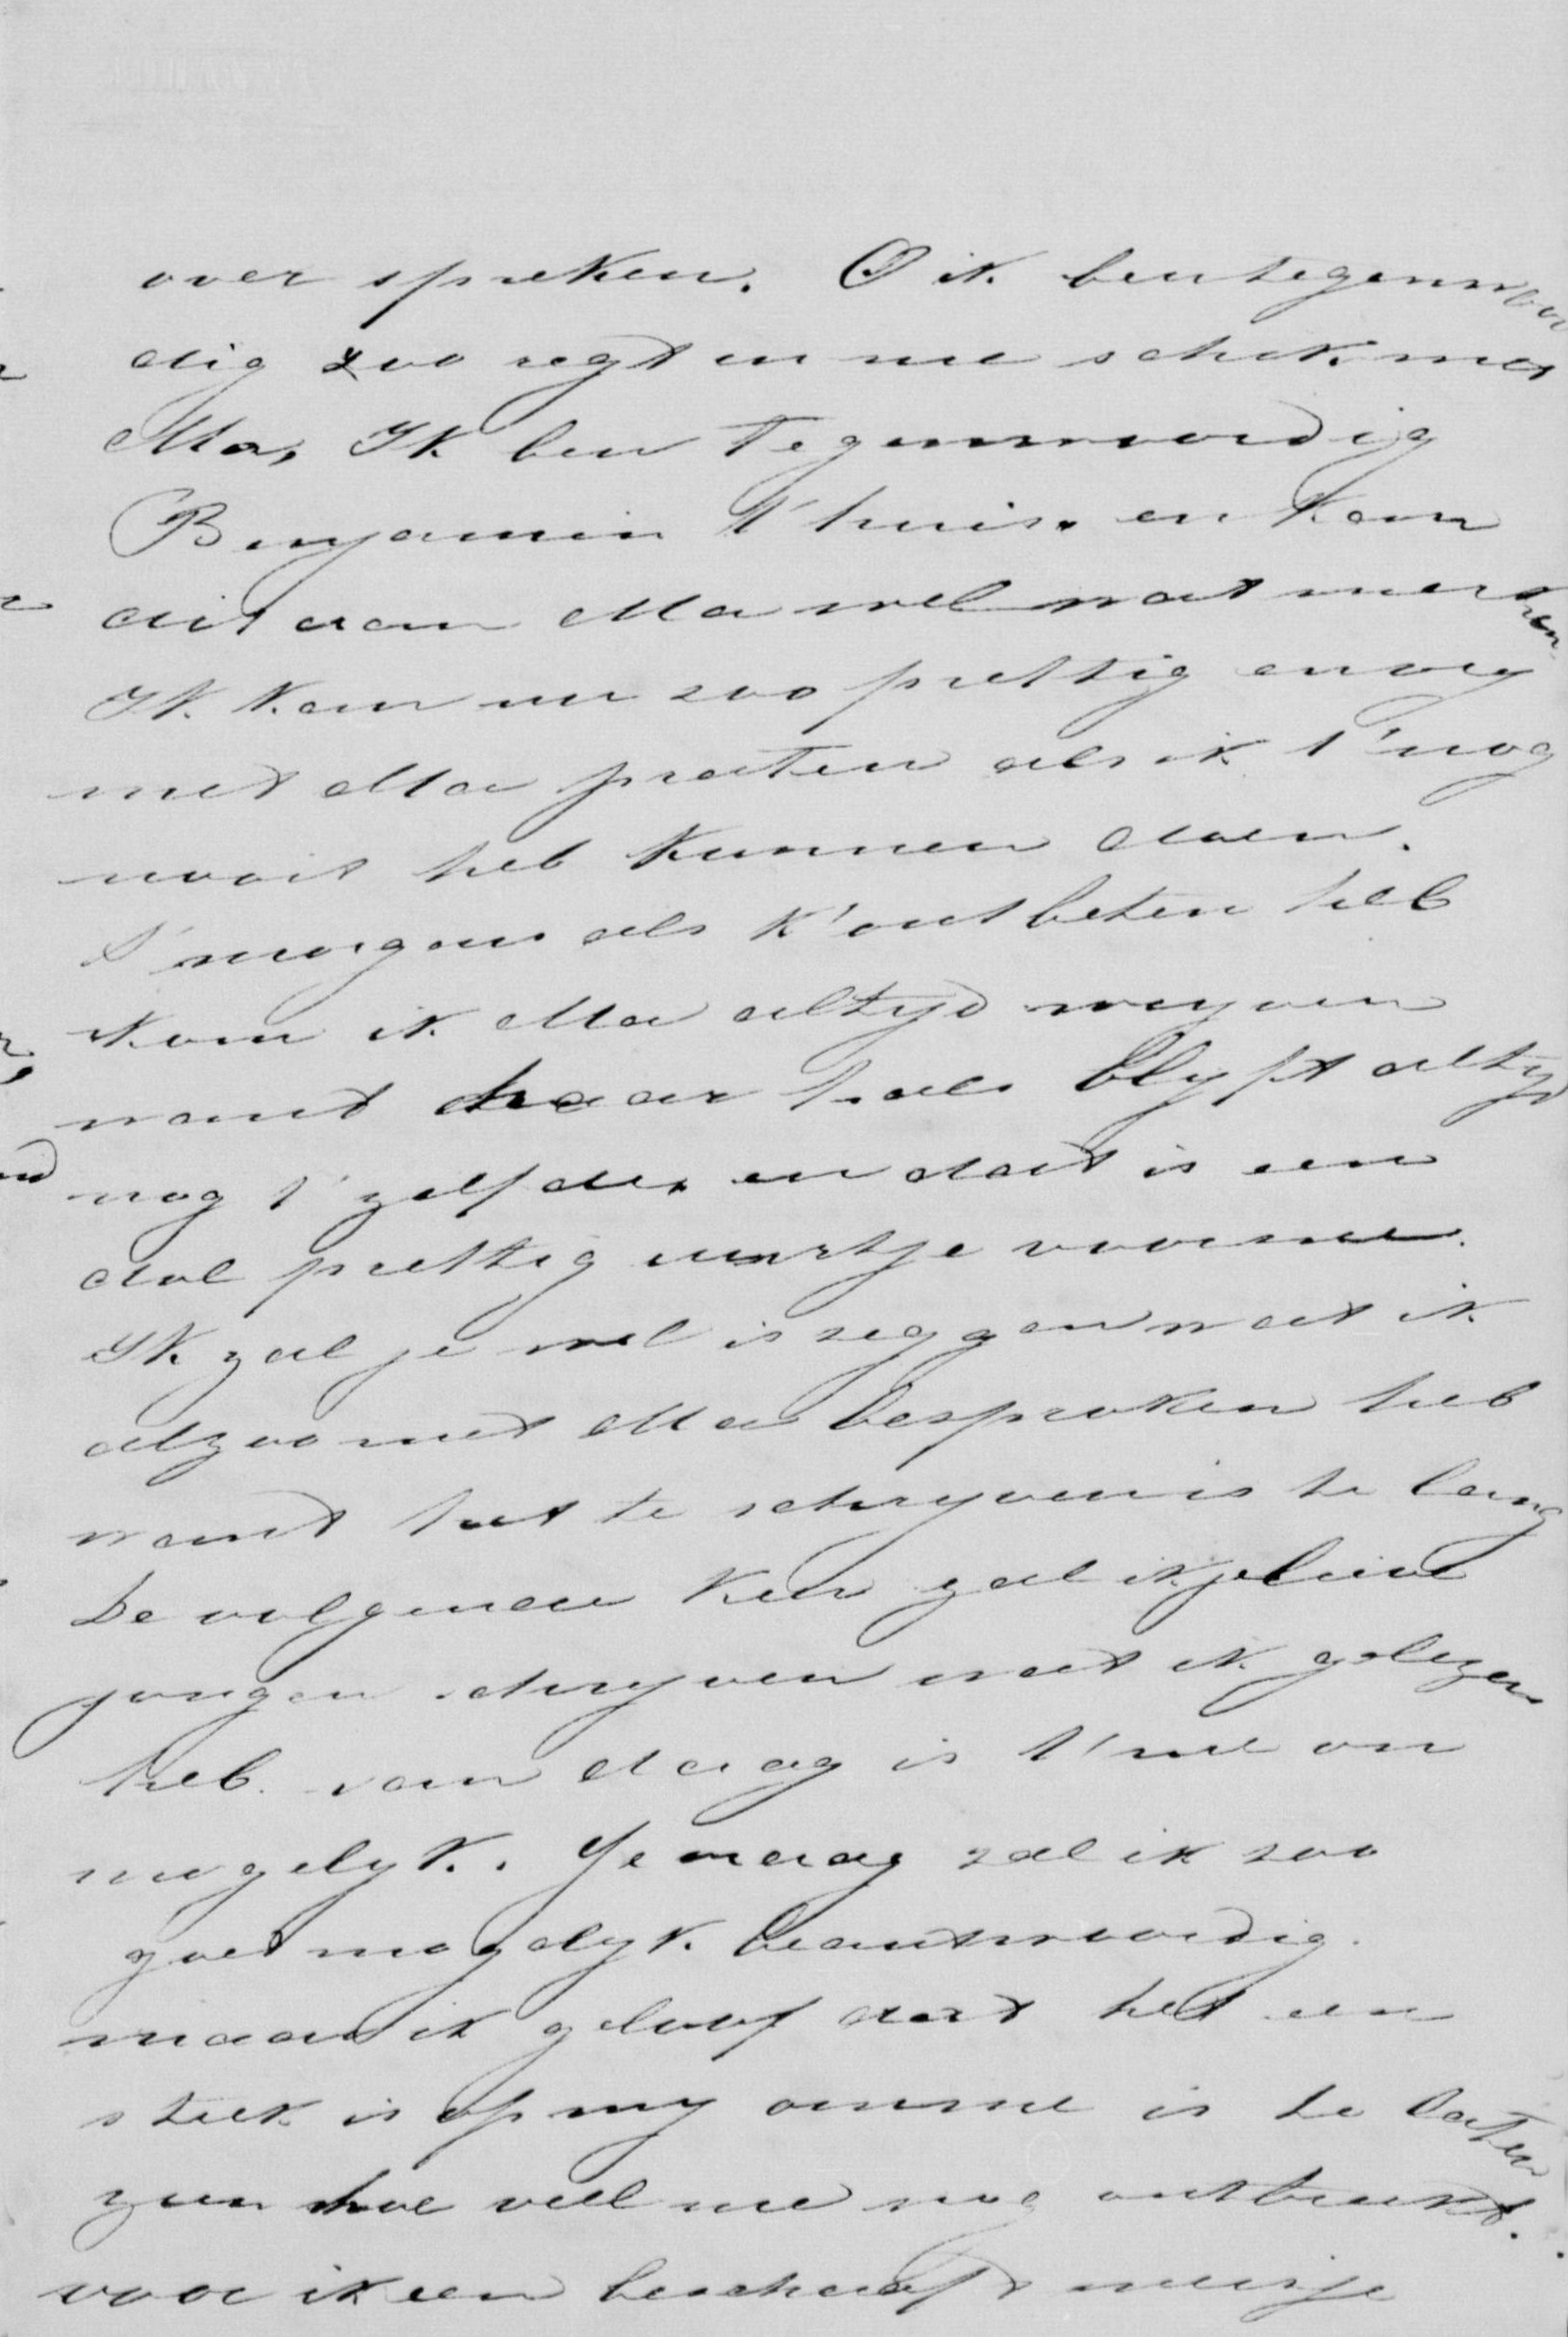 over spreken. O ik ben tegenwoor
dig zoo regt in me schik met
Ma, Ik ben Tegenwoordig
Benjamin t'huis. en kan
dit aan Ma wel wat merken
Ik kan nu zoo prettig en vry
met Ma praten als ik t'nog
nooit heb kunnen doen.
S'morgens als k'ontbeten heb
kom ik Ma altyd wryven
want haar hals blyft altyd
nog t'zelfde, en dat is een
dol prettig uurtje voor me.
Ik zal je wel is zeggen wat ik
alzoo met Ma besproken heb
want het te schryven is te lang
De volgende keer zal ik je lieve
jongen schryven wat ik gelezen
heb. van daag is t'me on
mogelyk. Je vraag zal ik zoo
goed mogelyk beantwoordig.
maar ik geloof dat het een
steek is op my om me is te laten
zien hoe veel me nog ontbreekt.
voor ik een beschaafd meisje